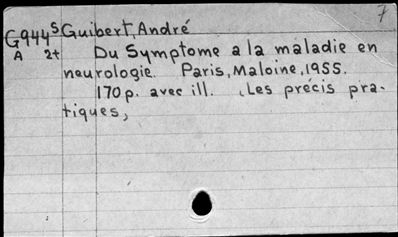 7
G944S Guibert, André
A 2+ Du Symptome a la maladie en
neurologie. Paris, Maloine, 1955.
170p. avec ill. (Les précis pra-
tiques,